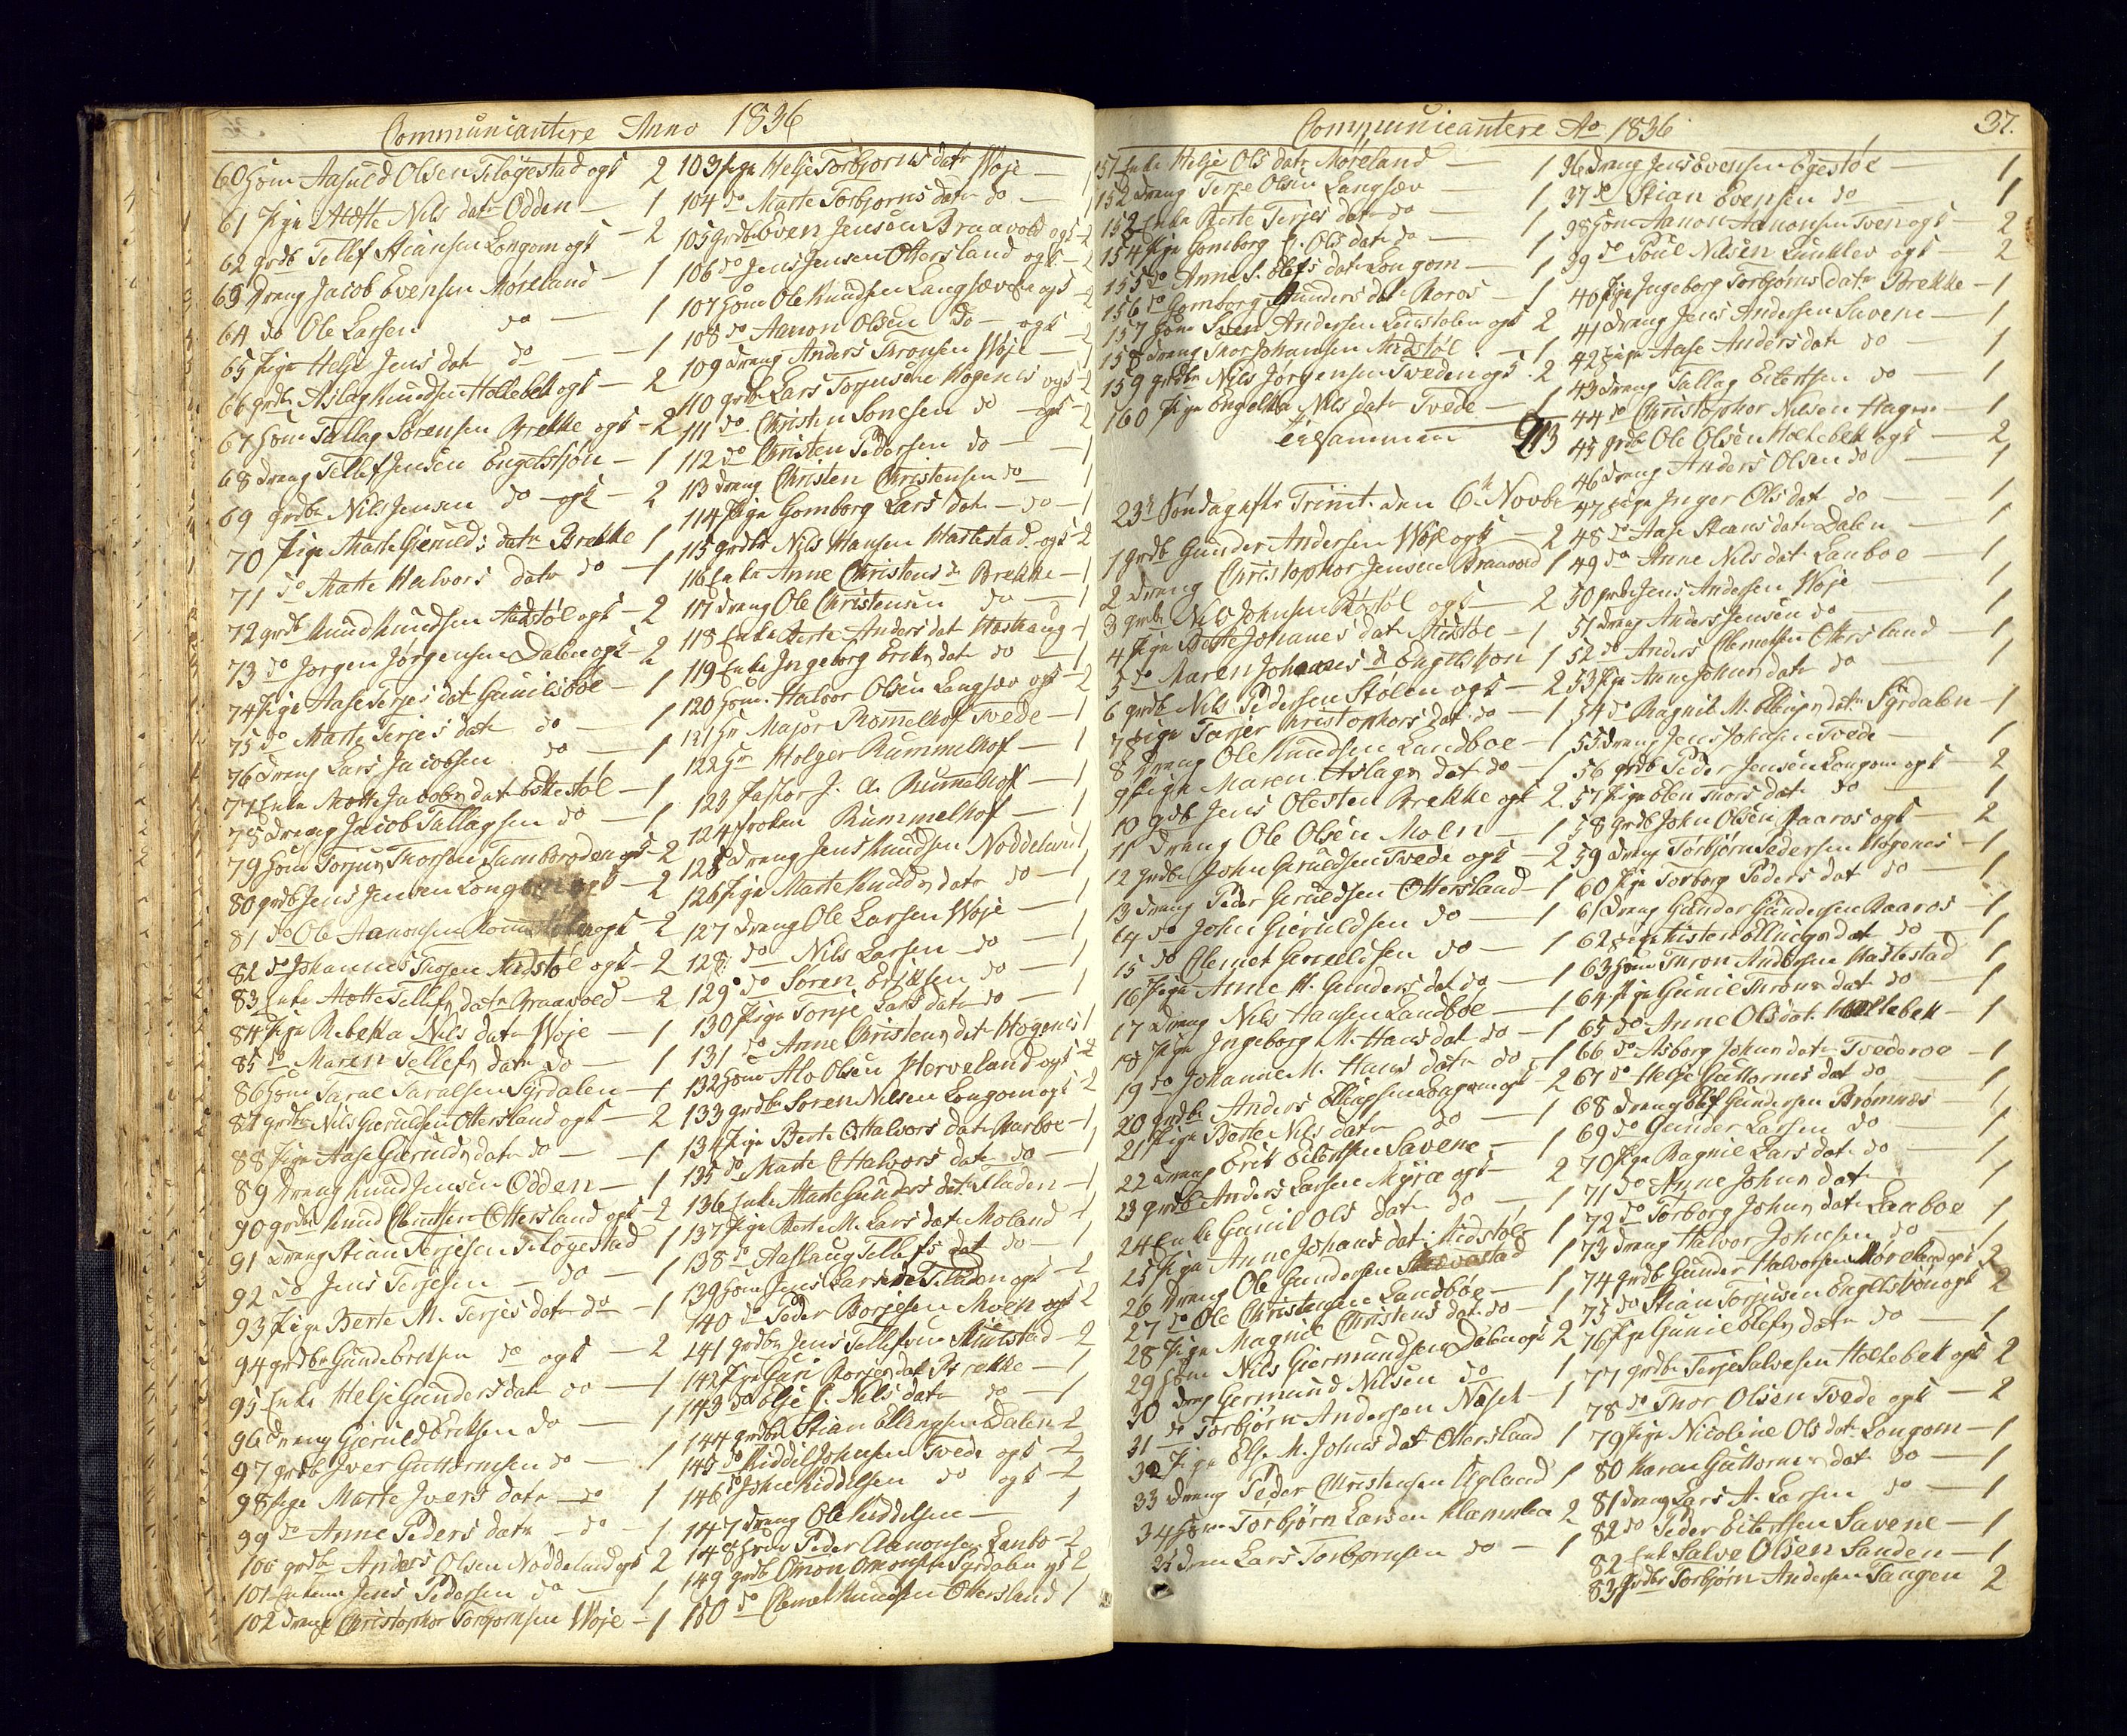 Communicantere Anno 1836
60 Huusm Aasuld Olsen Teløgestad ogk 2
61 Pige Mætte Nils datr Odden — 1
62 grdb Tellef Stiansen Longom ogk — 2
63 Dreng Jacob Evensen Møreland — 1
64 do Ole Larsen do — 1
65 Pige Helje Jens dat do — 1
66 grdbr Aslag Knudsen Holtebek ogk — 2
67 Huusm Tallag Sørensen Brekke ogk — 2
68 Dreng Tellef Jensen Engelstjøn — 1
69 grdbr Nils Jensen do ogk — 2
70 Pige Marte Gieruld: datr Brekke 1
71 do Marte Halvors datr do — 1
72 grdb Knud Knudsen Midstøl ogk — 2
73 do Jørgen Jørgensen Dalen ogk — 2
74 Pige Aase Terjes dat Gunilsboe — 1
75 do Marte Terjes datr do — 1
76 Dreng Lars Jacobsen do — 1
77 Enke Mætte Jacobs dat — 1
78 Dreng Jacob Tallagsen do — 1
79 Huusm Torjus Thorsen ogk — 2
80 grdb Jens Jensen Longom ogk — 2
81 do Ole Aanonsen ogk — 2
82 do Johannes Midstøl ogk — 2
83 Enke Mætte Tellefs datr Braavold — 2
84 Pige Rebekka Nils datr Woje — 1
85 do Maren Tellefs datr do — 1
86 Huusm Taral Taralsen Syrdalen — 1
87 grdbr Nils Gieruldsen Ottersland ogk — 2
88 Pige Aase Gierulds datr do — 1
89 Dreng Knud Jensen Odden — 1
90 grdbr Knud Clemetsen Ottersland ogk — 2
91 Dreng Stian Terjesen Teløgestad 1
92 do Jens Terjesen — do — 1
93 Pige Berte M. Terjes datr do — 1
94 grdbr Gunder Eriksen do ogk — 2
95 Enke Helje Gunders datr do — 1
96 Dreng Gieruld Eriksen do — 1
97 grdb Iver Guttormsen do — 1
98 Pige Marte Ivers datr do 1
99 do Anne Peders datr — do — 1
100 grdbr Anders Olsen Noddeland ogk 2
101 Enkem Jens Pedersen do — 1
102 Dreng Christopher Torbjørnsen Woje — 1
103 Pige Helje Torbjørns datr Woje — 1
104 do Marte Torbjørns datr do — 1
105 grdbr Even Jensen Braavold ogk — 2
106 do Jens Jensen Ottersland ogk — 2
107 Huusm Ole Knudsen Langsæv ogk — 2
108 do Aanon Olsen do — ogk — 2
109 Dreng Anders Tronsen Woje — 1
110 grdbr Lars Torjusen Høgenes ogk — 2
111 do Christen Sonesen do — ogk — 2
112 do Christen Pedersen do — 1
113 Dreng Christen Christensen do 1
114 Pige Gomborg Lars datr — do — 1
115 grdbr Nils Hansen Hastestad ogk 2
116 Enke Anne Christens dr Brekke — 1
117 Dreng Ole Christensen do — 1
118 Enke Berte Anders dat Haskaug — 1
119 Enke Ingeborg Eriks dat do — 1
120 Huusm Halvor Olsen Langsæv ogk — 2
121 Hr Major Rommelhof Tvede — 1
122 Hr Holger Rummelhof — 1
123 Pastor J. A. Rummelhoff — 1
124 Frøken Rummelhof — 1
125 Dreng Jens Knudsen Noddeland 1
126 Pige Marte Knuds datr do — 1
127 Dreng Ole Larsen Woje — 1
128 do Nils Larsen do — 1
129 do Søren Eriksen do — 1
130 Pige Tonje Lars datr do — 1
131 do Anne Christens dat Høgenes 1
132 Huusm Alo Olsen Herveland ogk 2
133 grdbr Søren Nilsen Longom ogk 2
134 Pige Berte Halvors datr Harboe — 1
135 do Marte Halvors datr do — 1
136 Enke Marte Gunders datr Fladen — 1
137 Pige Berte M. Lars datr Moland — 1
138 do Aaslaug Tellefs dat do — 1
139 Huusm Jens Larsen ogk — 2
140 do Peder Børjesen Moen ogk 2
141 grdbr Jens Tellefsen — 2
142 Pige Guri Børjes dat Brekke — 1
143 do Elje J. Nils datr do — 1
144 grdbr Stian Ellingsen Dalen — 2
145 do Kiddel Johnsen Tvede ogk — 2
146 do John Kiddelsen do ogk — 2
147 Dreng Ole Kiddelsen — 1
148 grdbr Peder Aanonsen Lanbo — 2
149 grdb Omon Omonsen Syrdalen ogk 2
150 do Clemet Knudsen Ottersland 1
Communicantere Ao 1836
37.
151 Enke Helje Ols datr Møreland — 1
152 Dreng Terje Olsen Langsæv — 1
153 Enke Berte Terjes datr do — 1
154 Pige Gomborg J. Ols datr do — 1
155 do Anne S. Olefs datr Longom — 1
156 do Gomborg Gunders dat Roros — 1
157 Huusm Sven Andersen ogk 2
158 Dreng Thor Johansen Midstøl — 1
159 grdbr Nils Jørgensen Tveden ogk 2
160 Pige Engelke Nils datr Tvede — 1
tilsammen 213
23de Søndag eftr Trinit. den 6te Novbr
1 grdb Gunder Andersen Woje ogk — 2
2 Dreng Christopher Jensen Braavold 1
3 grdbr Nils Johnsen Røstøl ogk — 2
4 Pige Berte Johanes dat Midstøl — 1
5 do Maren Johanes d Engelstjøn 1
6 grdb Nils Pedersen Stølen ogk — 2
7 Pige Tarjer Christophers dat do — 1
8 Dreng Ole Knudsen Landboe — 1
9 Pige Maren Aslags dat do — 1
10 grdb Jens Olesten Brekke ogk 2
11 Dreng Ole Olsen Moen — 1
12 grdbr John Gieruldsen Tvede ogk — 2
13 Dreng Peder Gieruldsen Ottersland — 1
14 do John Gieruldsen do — 1
15 do Clemet Gieruldsen do — 1
16 Pige Anne K. Gunders dat do — 1
17 Dreng Nils Hansen Landboe — 1
18 Pige Ingeborg M. Hans dat do — 1
19 do Johanne M. Hans datr do — 1
20 grdbr Anders Ellingsen Longom ogk — 2
21 Pige Berte Nils datr do — 1
22 Dreng Erik Eilertsen Savene — 1
23 grdb Anders Larsen Myra ogk — 2
24 Enke Gunil Ols datr do — 1
25 Pige Anne Johans dat Midstøl 1
26 Dreng Ole Gundersen 1
27 do Ole Christensen Landbøe — 1
28 Pige Magnil Christens dat do — 1
29 Huusm Nils Giermundsen Dalen ogk 2
30 Dreng Germund Nilsen do 1
31 do Torbjørn Andersen Næset — 1
32 Pige Else M. Johns dat Ottersland 1
33 Dreng Peder Christensen Ugland 1
34 Huusm Torbjørn Larsen 2
35 Dreng Lars Torbjørnsen do — 1
36 Dreng Jens Evensen Egestøl — 1
37 do Stian Evensen do — 1
38 Huusm Aanon Aanonsen Tven ogk — 2
39 do Poul Nilsen ogk — 2
40 Pige Ingeborg Torbjørns datr Brekke — 1
41 Dreng Jens Andersen Savene — 1
42 Pige Aase Anders dat do — 1
43 Dreng Tallag Eilertsen do — 1
44 do Christopher Nilsen Hagen — 1
45 grdbr Ole Olsen Holtebek ogk — 2
46 Dreng Anders Olsen do — 1
47 Pige Inger Ols dat do — 1
48 do Aase Stians datr Dalen — 1
49 do Anne Nils dat Lanboe — 1
50 grdbr Jens Andersen Woje — 1
51 Dreng Anders Jensen do — 1
52 do Anders Clemetsen Ottersland 1
53 Pige Anne Johns datr do — 1
54 do Ragnil M. Ellings datr Syrdalen — 1
55 Dreng Jens Johnsen Tvede — 1
56 grdb Peder Jensen Longom ogk — 2
57 Pige Elen Thors dat do — 1
58 grdb John Olsen Raaros ogk — 2
59 Dreng Torbjørn Pedersen Høgenes — 1
60 Pige Torborg Peders dat do — 1
61 Dreng Gunder Gundersen Raaros — 1
62 Pige Kisten Ellings dat do — 1
63 Huusm Thron Andersen Hastestad 1
64 Pige Gunil Throns dat do — 1
65 do Anne Ols dat Holtebek — 1
66 do Asborg Johns datr Tvederoe — 1
67 do Helje Guttorms dat do — 1
68 Dreng Olef Gundersen Brømnes — 1
69 do Gunder Larsen do — 1
70 Pige Ragnil Lars datr do — 1
71 do Anne Johns dat — 1
72 do Torborg Johns datr Lanboe 1
73 Dreng Halvor Johnsen do 1
74 grdb Gunder Halvorsen Møreland ogk 2
75 do Stian Torjusen Engelstjøn ogk 2
76 Pige Gunil Olefs datr do — 1
77 grdbr Terje Salvesen Holtebek ogk 2
78 do Thor Olsen Tvede ogk — 2
79 Pige Nicoline Ols dat Longom — 1
80 Karen Guttorms dat do — 1
81 Dreng Lars A. Larsen do — 1
82 do Peder Eilertsen Savene — 1
82 Enk Salve Olsen Sanden — 1
83 grdbr Torbjørn Andersen Tangen 2